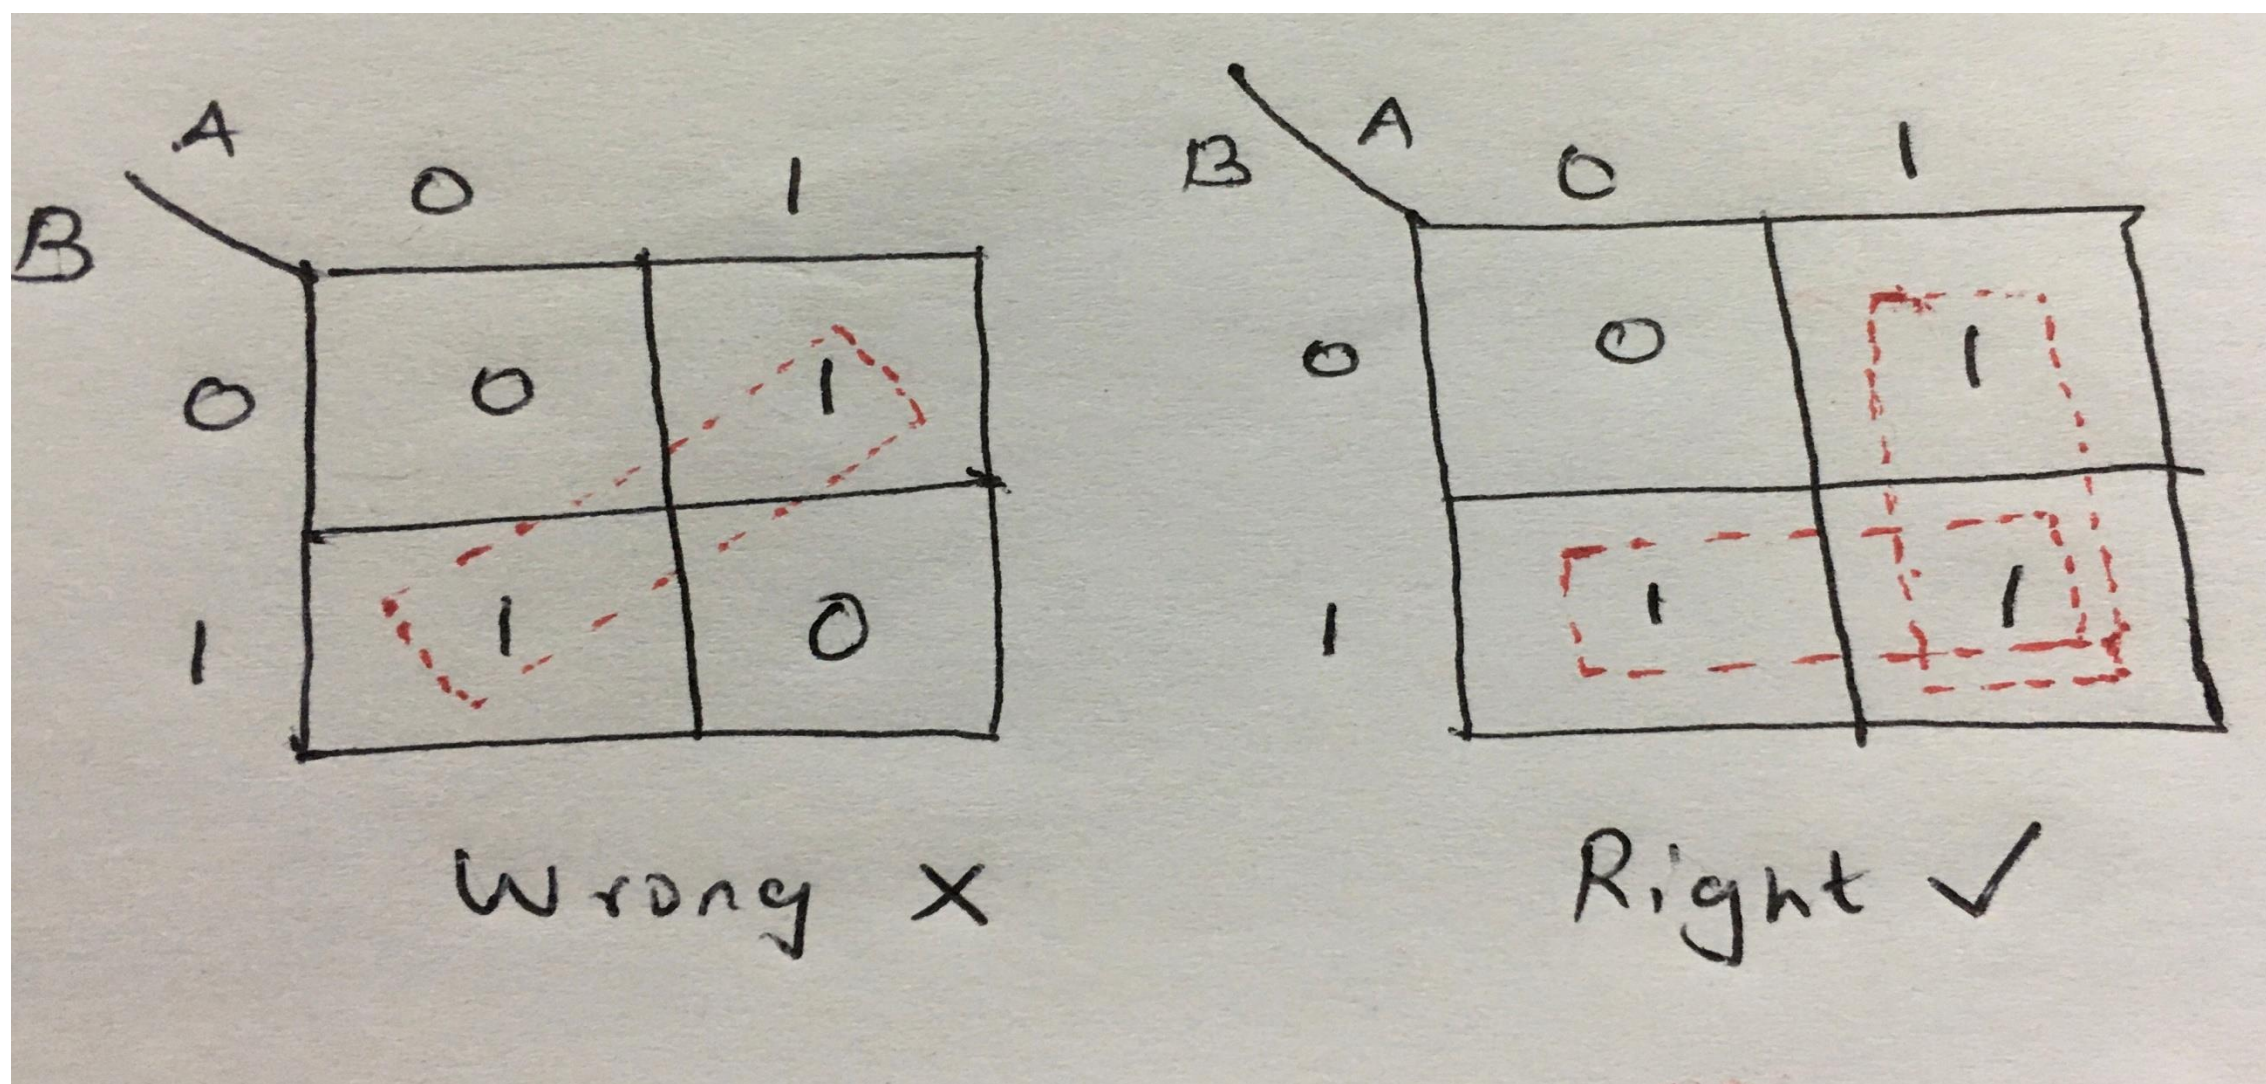 A 0 1
B
0 0 1
1 1 0
Wrong X
A 0 1
B
0 0 1
1 1 1
Right ✓